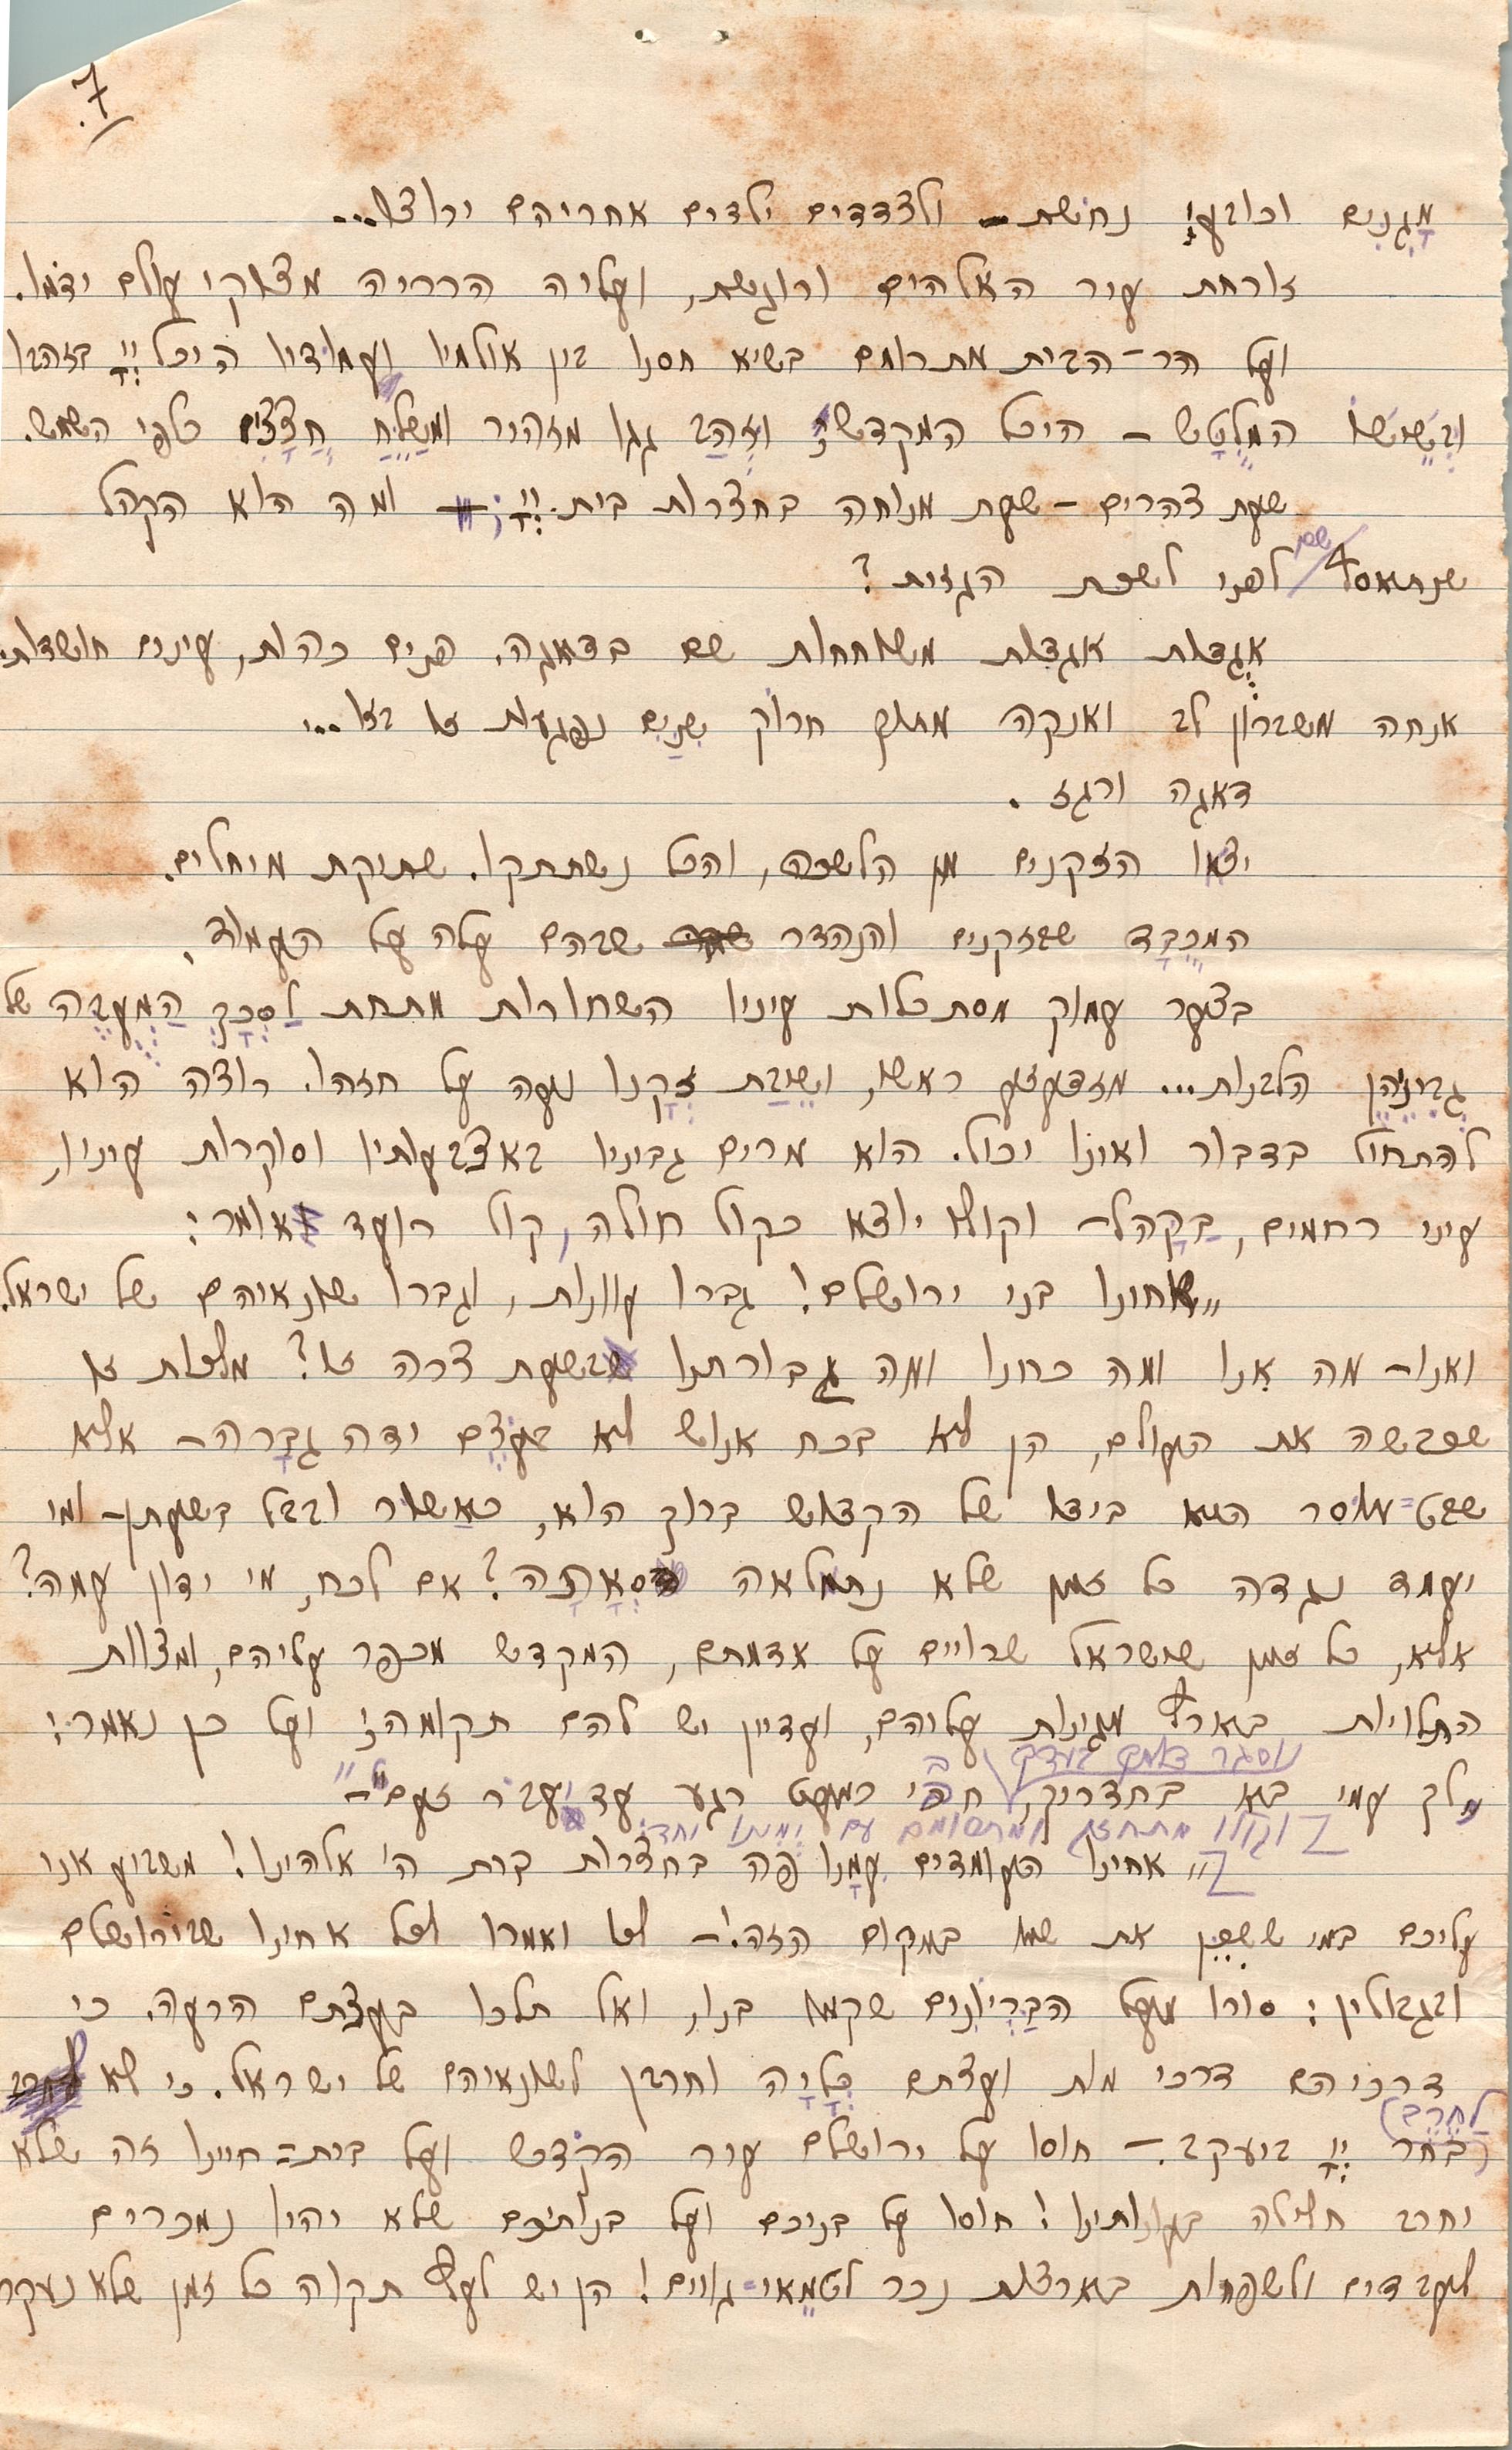 7.
מָגִנִּים וכובעי נחושת – ולצדדים ילדים אחריהם ירוצו...
זורחת עיר האלהים ורוגשת, ועליה הרריה מצוקי עולם ידֹמו.
ועל הר-הבית מתרומם בשיא חסנו בין אולמיו ועמודיו היכל יְיָ בזהבו
וּבְשֵׁישׁוֹ המלֻטָש – היכל המקדש; וּזֲהַב גגו מזהיר ומְשַלֵּחַ חֲצָצִים כלפי השמש.
שעת צהרים – שעת מנוחה בחצרות בית יְיָ; ומה הוא הקהל
שנתאסף שם לפני לשכת הגזית?
אֲגֻדות אגֻדות משוחחות שם בדאגה. פנים כהות, עינים חושדות.
אנחה משברון לב ואנקה מתוך חרוק שִנַּיִם נפגעות זו בזו...
דאגה ורגז.
יצאו הזקנים מן הלשכה, והכל נשתתקו. שתיקת מיחלים.
המכֻבָּד שבזקנים והנהדר שבהם עלה על העמוד.
בצער עמוק מסתכלות עיניו השחורות מתחת לַסְּכָךְ הַמְעֻבֶּה של
גְּבִינֵיהֶן הלבנות... מזדעזע ראשו, ושֵׂיבַת זְקָנו נעה על חזהו. רוצה הוא
להתחיל בדבור ואינו יכול. הוא מרים גביניו באצבעותיו וסוקרות עיניו,
עיני רחמים, בַּקָּהל – וקולו יוצא כקול חולה, קול רועד ואומר:
„אחינו בני ירושלים! גברו עוונות, וגברו שונאיהם של ישראל.
ואנו – מה אנו ומה כוחנו ומה גבורתנו בשעת צרה זו? מלכות זו
שכבשה את העולם, הן לא בכח אנוש לא בעֹצֶם ידה גבָרה – אלא
שבט=מוסר היא בידו של הקדוש ברוך הוא, כאַשור ובבל בשעתן – ומי
יעמוד נגדה כל זמן שלא נתמלאה סְאָתָהּ? אם לכח, מי ידון עמה?
אלא, כל זמן שישראל שרויים על אדמתם, המקדש מכפר עליהם, ומצוות
התלויות בארץ מגינות עליהם, ועדיין יש להם תקומה; ועל כן נאמר:
נוסגר דלתך בעדך
„לך עמי בוא בחדריך, חבי כמעט רגע עד יעבור זעם" –
וקולו מתחזק ומתרומם עם
„אחינו העומדים עִמָּנו פה בחצרות בית ה' אלהינו! משביע אני
עליכם במי ששִׁכֵּן את שמו במקום הזה! – לכו ואמרו לכל אחינו שבירושלים
ובגבולין: סורו מעל הבַּרְיוֹנִים שקמו בנו, ואל תלכו בעצתם הרעה. כי
דרכיהם דרכי מות ועצתם כְּלָיָה וחורבן לשונאיהם של ישראל. כי לא
לַחֶרֶב
בָּחר יְיָ ביעקב. – חוסו על ירושלים עיר הקֹדש ועל בית=חיינו זה שלא
יחרב חלילה בעונותינו! חוסו על בניכם ועל בנותיכם שלא יהיו נמכרים
לעבדים ולשפחות בארצות נכר לטמֵאי-גויים! הן יש לעץ תקוה כל זמן שלא נעקר